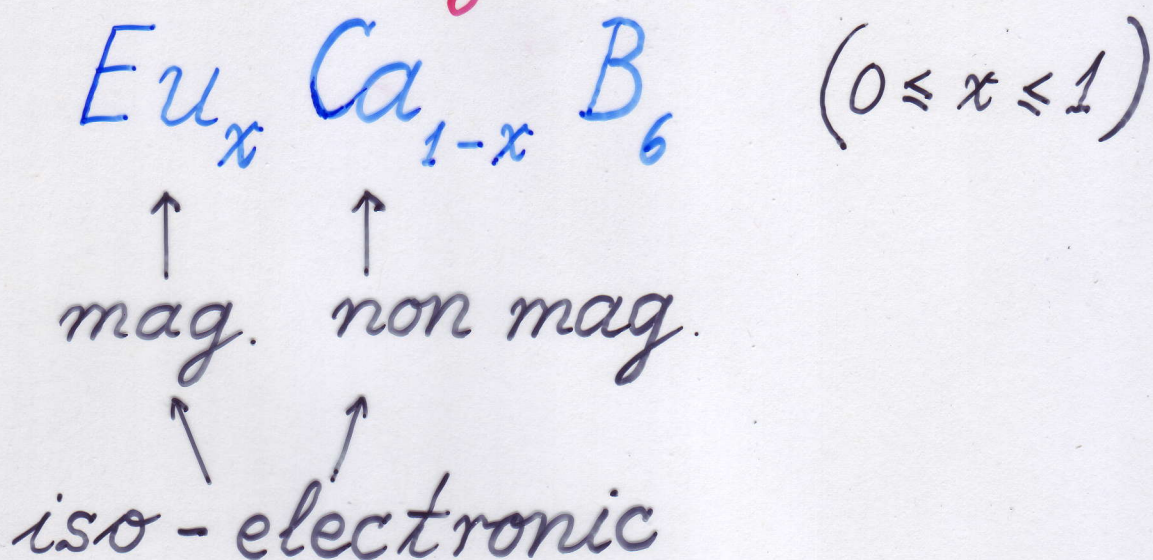 Euₓ Ca₁₋ₓ B₆ (0 ≤ x ≤ 1)
↑ ↑
mag. non mag.
iso-electronic